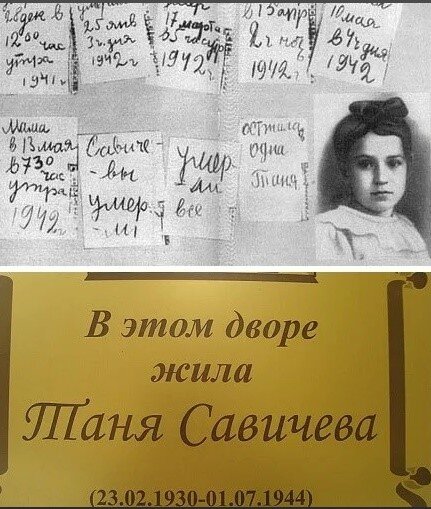 28 ден в
12 00 час
утра
1941 г
25 янв
3 ч. дня
1942 г
17 марта в
в 5 час утр
1942 г
в 13 апр
2 ч ноч
1942 г
10 мая
в 4 ч дня
1942
Мама
в 13 мая
в 7 30 час
утра
1942 г
Савиче-
-вы
умер-
-ли
умер-
-ли
все
осталась
одна
Таня
В этом дворе
жила
Таня Савичева
(23.02.1930-01.07.1944)